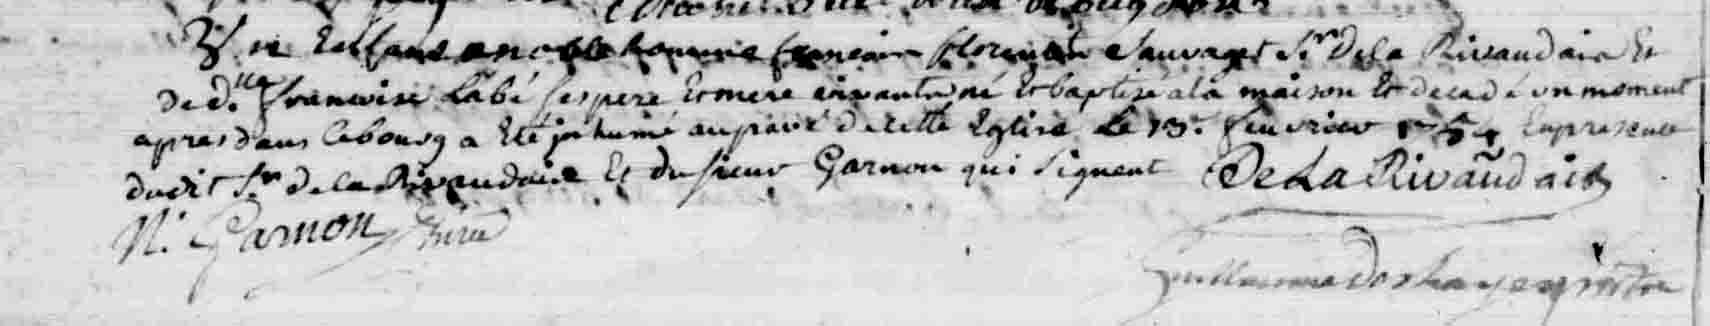 Un Enfant a noble homme francois florentin Sauvaget Sr. De la Rivaudais Et
de d.lle francoise Labé ses pere Et mere vivants né Et baptisé a la maison Et decedé un moment
apres dans le bourg a Eté inhumé au pavé de cette Eglise Le 13e. fevrier 1754 En presence
dudit Sr. de la Rivaudaie Et du sieur Garnon qui signent De La Rivaudais
N. Garnon
Guillaume Deshayes rector